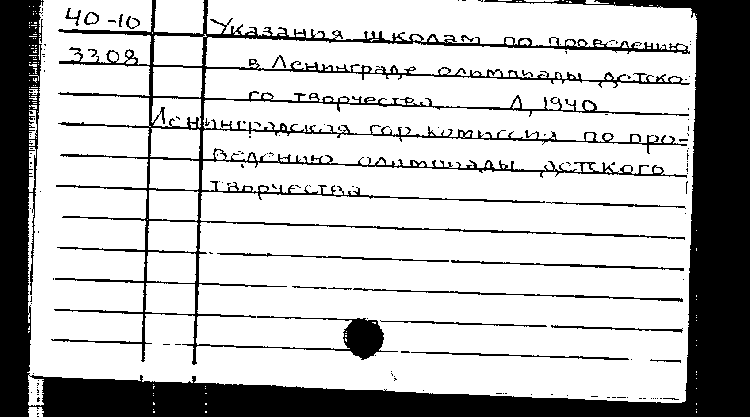 40-10 Указания школам по проведению
3308 в Ленинграде олимпиады детско-
го творчества. Л, 1940
Ленинградская гор. комиссия по про-
ведению олимпиады детского
творчества